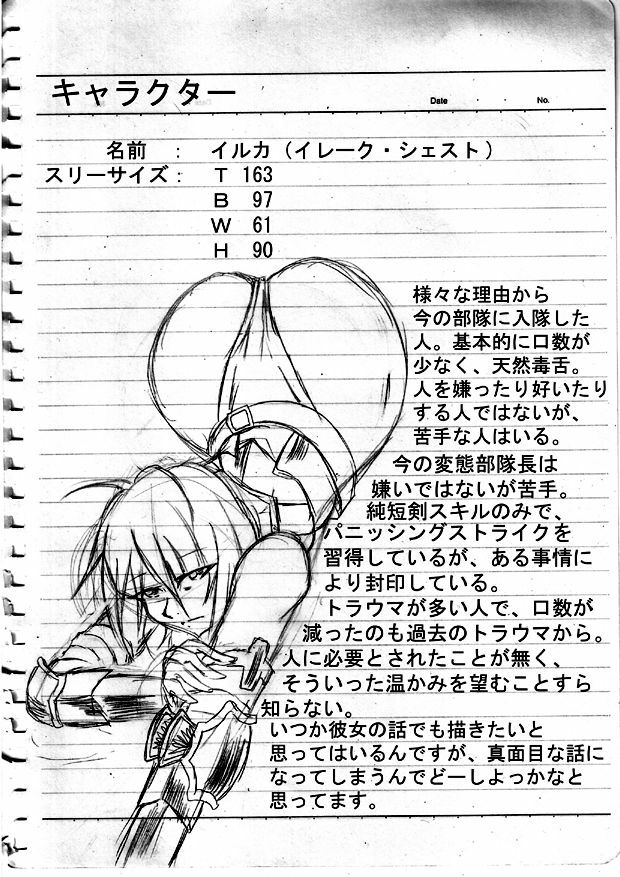 キャラクター
Date ・ ・ No.
名前 : イルカ（イレーク・シェスト）
スリーサイズ： T 163
B 97
W 61
H 90
様々な理由から
今の部隊に入隊した
人。基本的に口数が
少なく、天然毒舌。
人を嫌ったり好いたり
する人ではないが、
苦手な人はいる。
今の変態部隊長は
嫌いではないが苦手。
純短剣スキルのみで、
パニッシングストライクを
習得しているが、ある事情に
より封印している。
トラウマが多い人で、口数が
減ったのも過去のトラウマから。
人に必要とされたことが無く、
そういった温かみを望むことすら
知らない。
いつか彼女の話でも描きたいと
思ってはいるんですが、真面目な話に
なってしまうんでどーしよっかなと
思ってます。